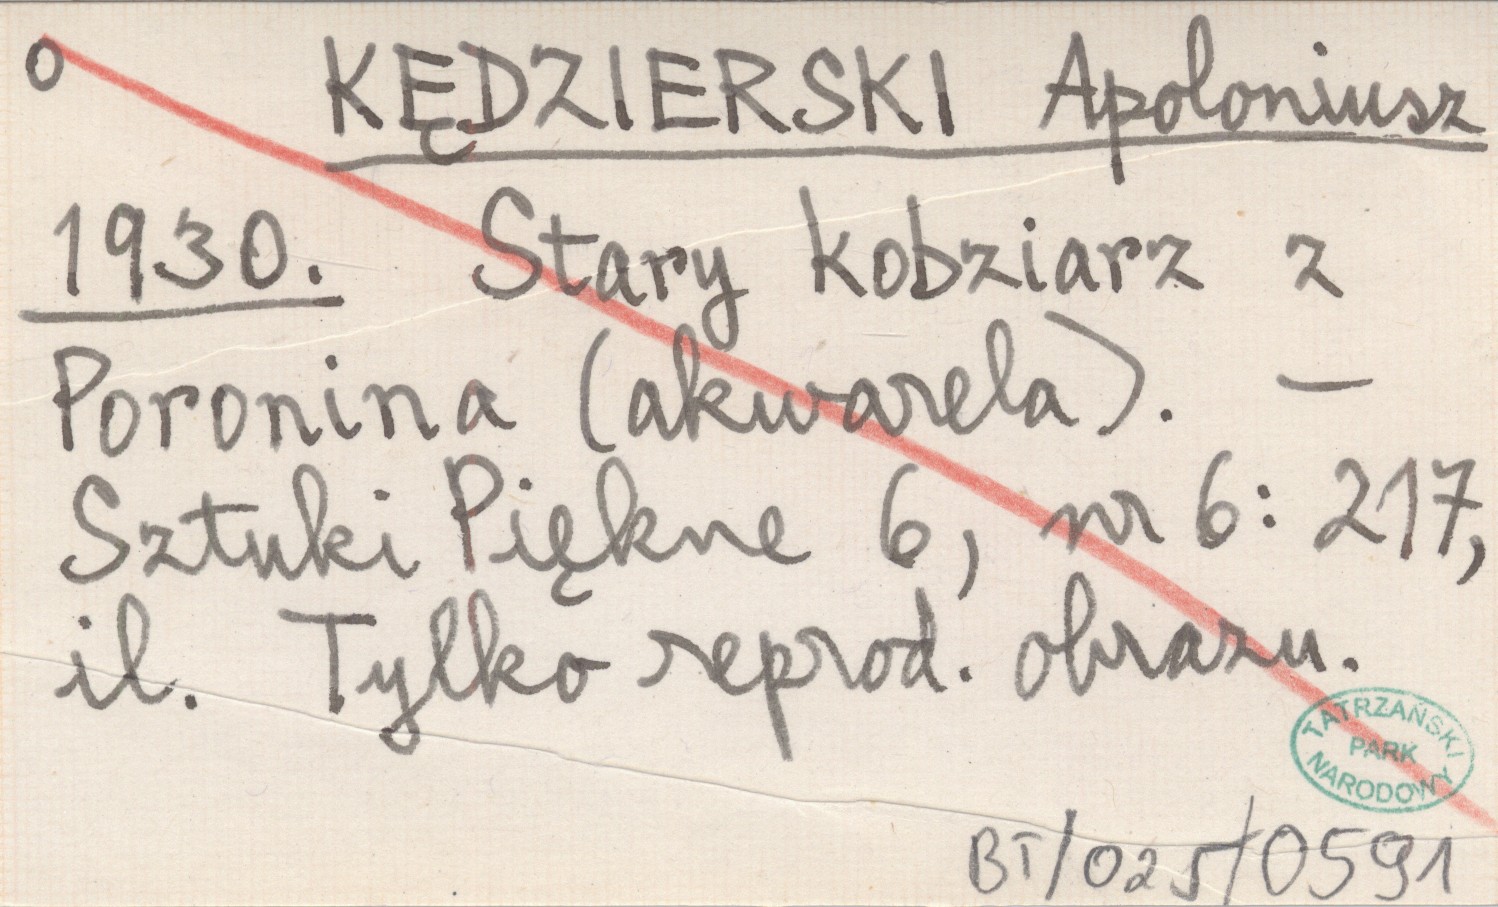 o KĘDZIERSKI Apoloniusz
1930. Stary kobziarz z
Poronina (akwarela). —
Sztuki Piękne 6, nr 6: 217,
il. Tylko reprod. obrazu.
TATRZAŃSKI
PARK
NARODOWY
BT/025/0591